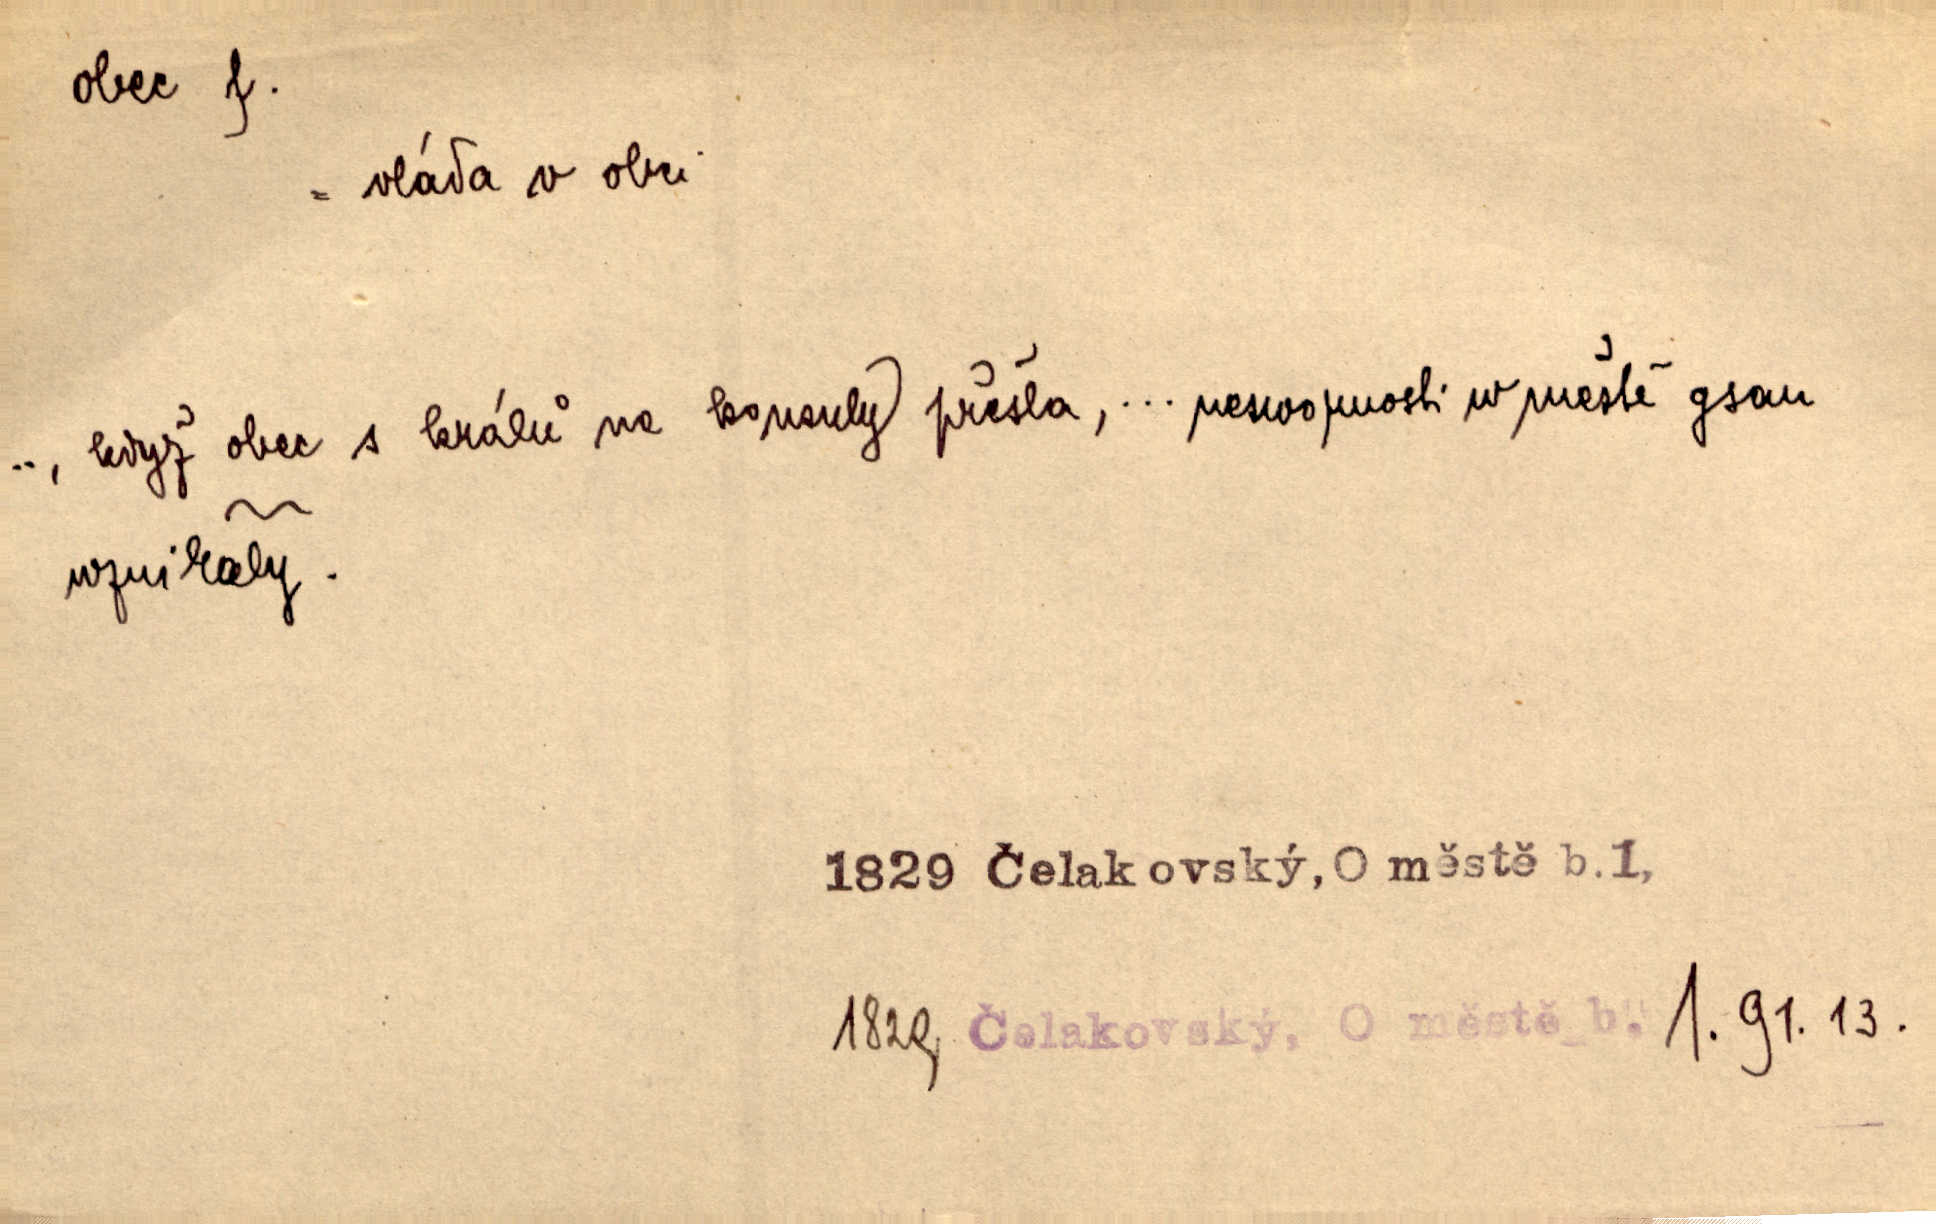 obec f.
= vláda v obci
.., když obec s králů na konsuly přešla, ... neswornosti w městě gsau
wznikaly.
1829 Čelakovský, O městě b.1,
1829 Čelakovský, O městě b. 1. 91. 13.